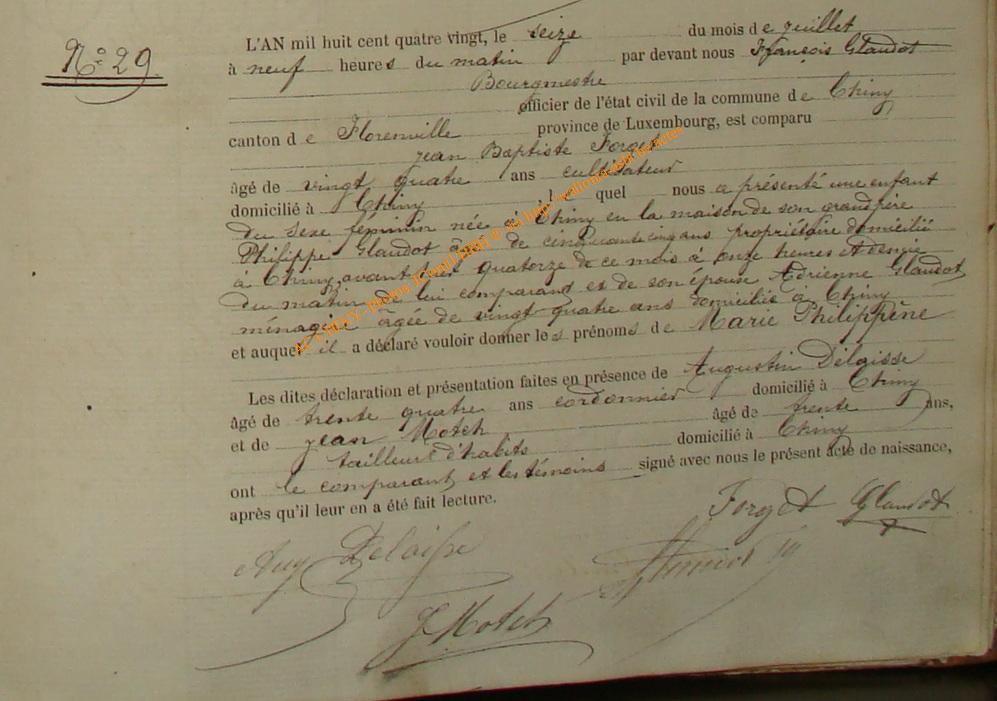 N° 29.
L'AN mil huit cent quatre vingt, le seize du mois de juillet
à neuf heures du matin par devant nous François Glaudot
Bourgmestre
officier de l'état civil de la commune de Chiny
canton de Florenville province de Luxembourg, est comparu
jean Baptiste Forget
âgé de vingt quatre ans cultivateur
domicilié à Chiny l quel nous a présenté une enfant
du sexe féminin née à Chiny en la maison de son grandpère
Philippe Glaudot âgé de cinquante cinq ans propriétaire domicilié
à Chiny, avant hier quatorze de ce mois à onze heures et demie
du matin de lui comparant et de son épouse Adrienne Glaudot
ménagère âgée de vingt quatre ans domiciliée à Chiny
et auquel il a déclaré vouloir donner les prénoms de Marie Philippène
Les dites déclaration et présentation faites en présence de Augustin Délaisse
âgé de trente quatre ans cordonnier domicilié à Chiny
et de jean Motch âgé de trente ans,
tailleur d'habits domicilié à Chiny
ont le comparant et les témoins signé avec nous le présent acte de naissance,
après qu'il leur en a été fait lecture.
Forget Glaudot
Aug Delaisse
J Motch